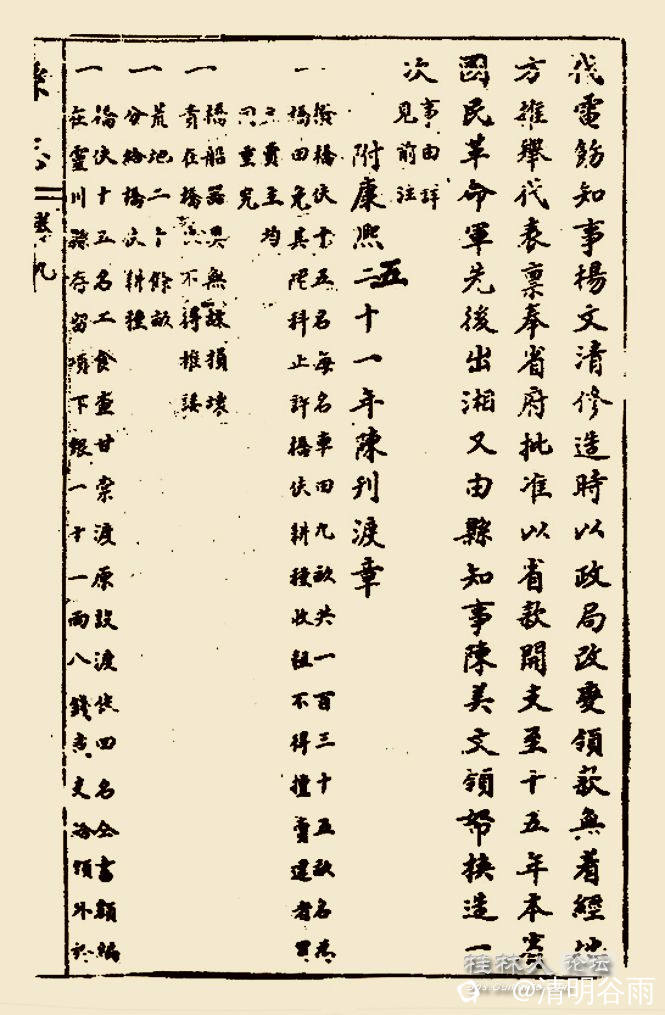 代電飭知事楊文清修造時以政局改變領款無着經地
方推舉代表稟奉省府批准以省款開支至十五年本省
國民革命軍先後出湘又由縣知事陳美文領帑挾造一
次
事由詳
見前注
附康熙二十一年陳刊渡章
五
一
橋伕十五名每名車田九畝共一百三十五畝名為
橋田免其陞科止許橋伕耕種收租不得擅賣違者買
主賣主均
同重究
一
橋船器具無故損壞
責在橋不得推諉
一
荒地二十餘畝
分給橋夫耕種
一
橋伕十五名工食查甘棠渡原設渡伕四名全書額編
在靈川縣存留項下銀一十一兩八錢支給額外於
卷九
桂林人论坛
@清明谷雨